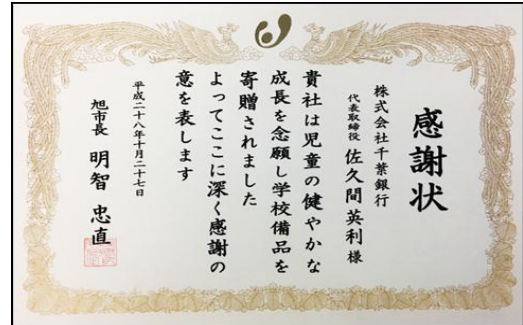 感謝状
株式会社千葉銀行
代表取締役 佐久間英利 様
貴社は児童の健やかな
成長を念願し学校備品を
寄贈されました
よってここに深く感謝の
意を表します
平成二十八年十月二十七日
旭市長 明智 忠直